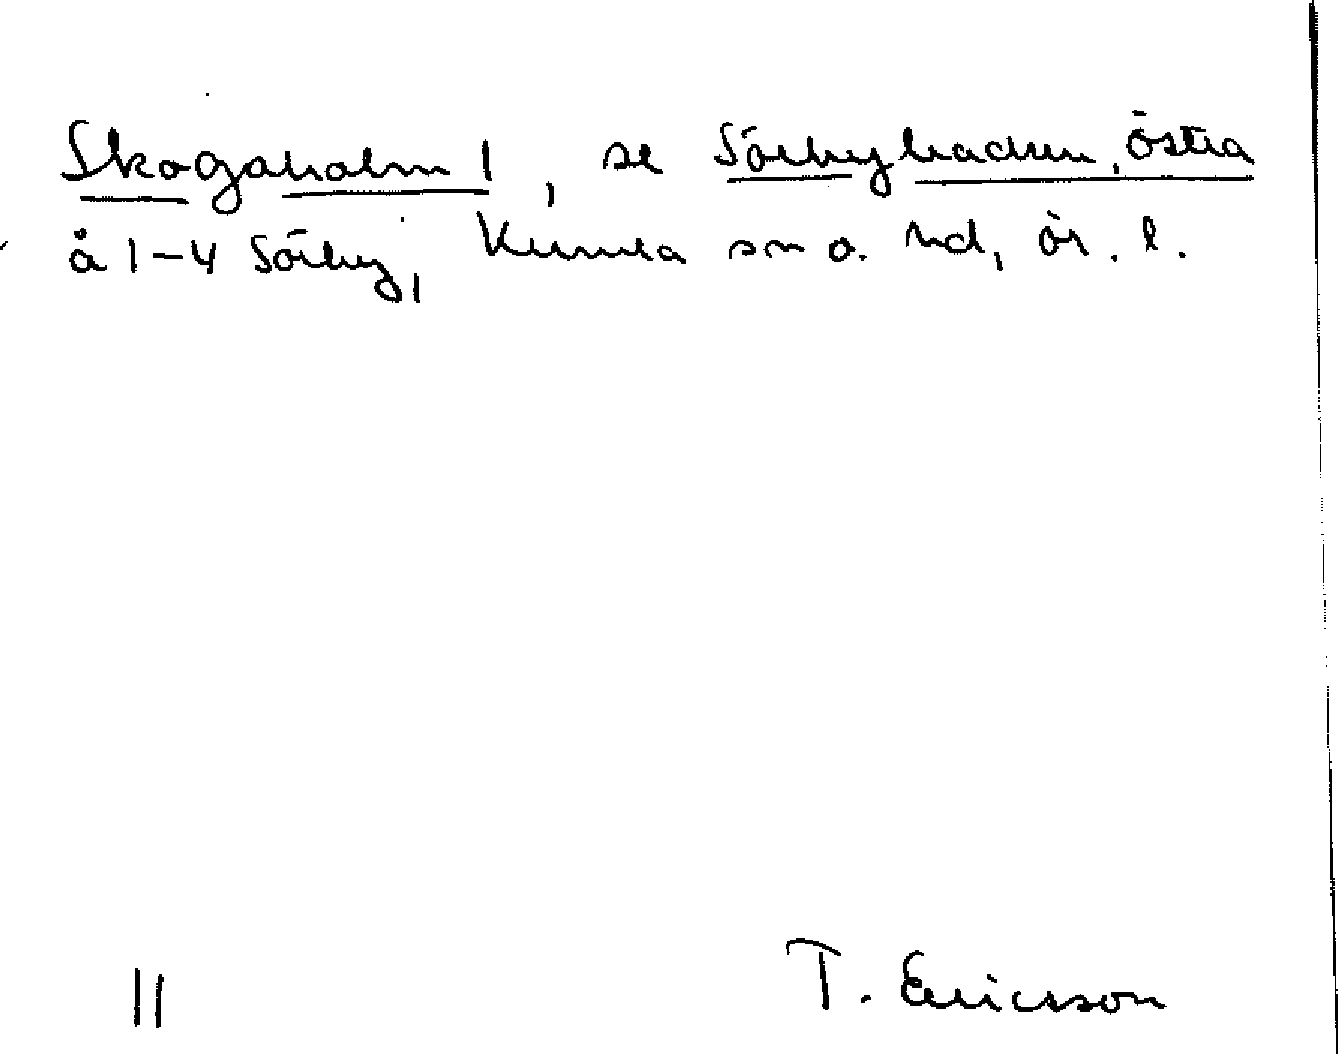 Skogaholm 1, se Sörbybacken, östra
å 1-4 Sörby, Kumla sn o. hd, ör. l.
11
T. Ericsson